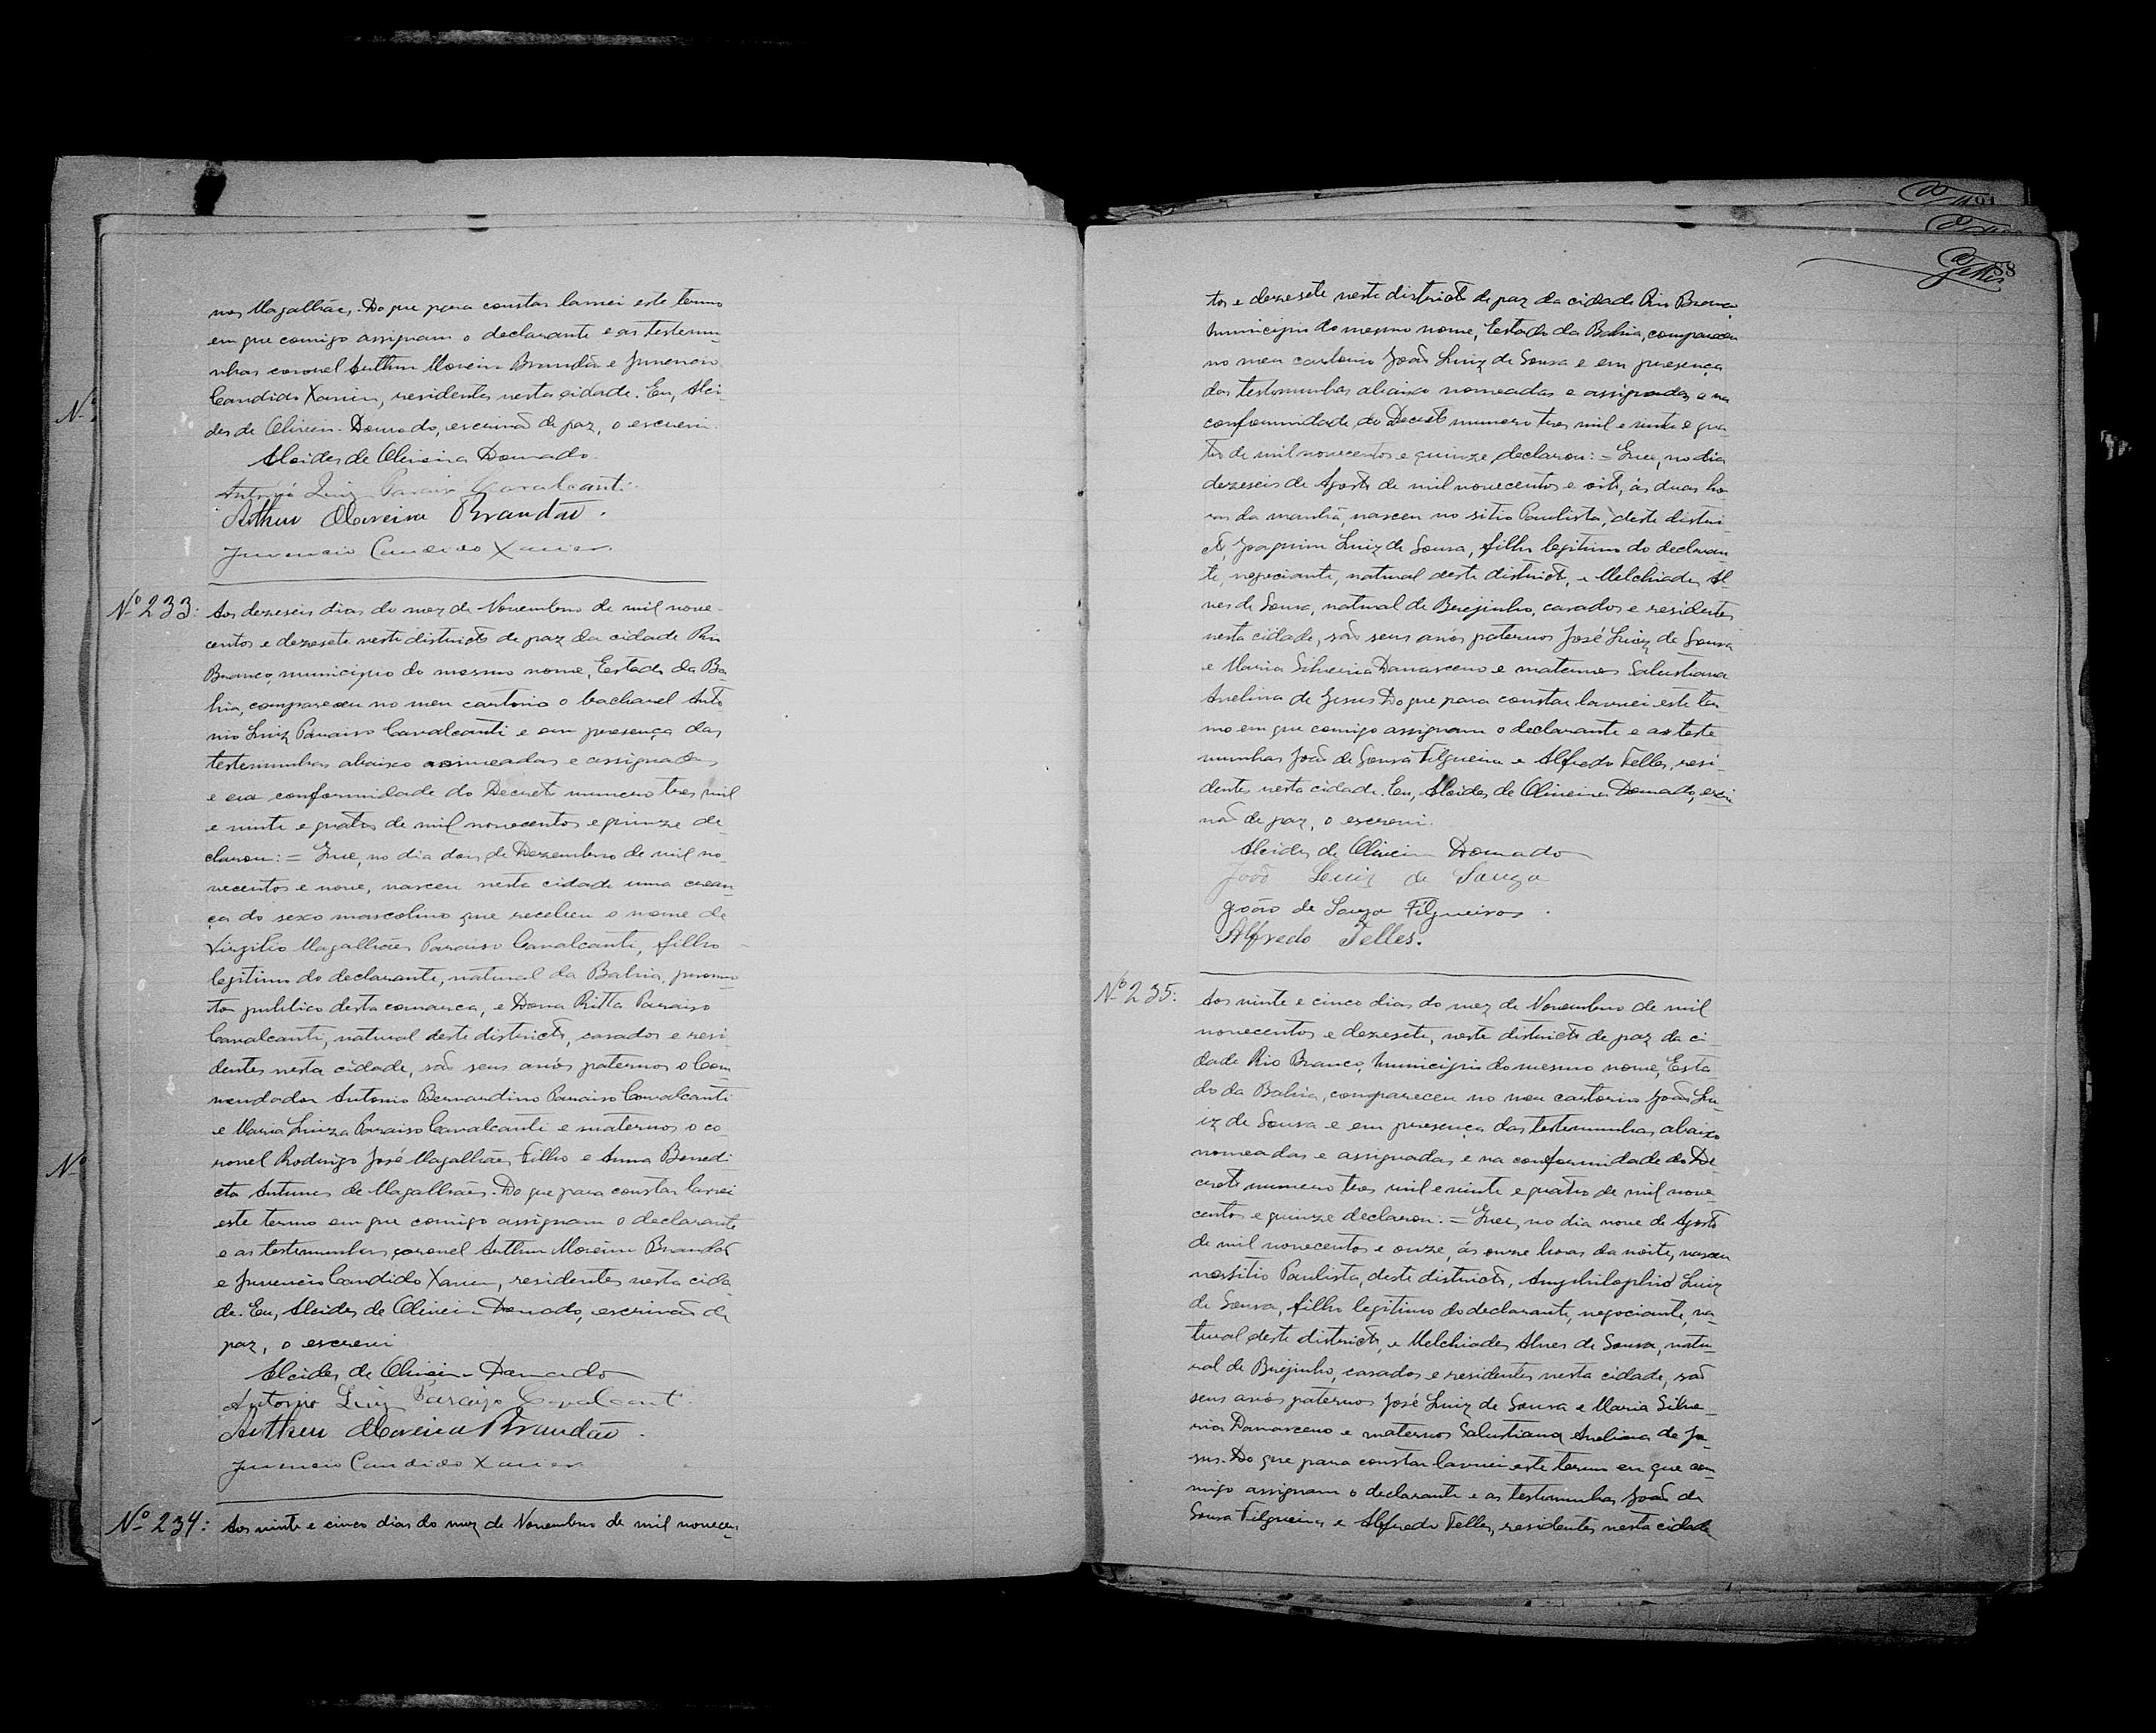 nes Magalhães. Do que para constar lavrei este termo
em que comigo assignam o declarante e as testemu-
nhas coronel Arthur Moreira Brandão e Juvencio
Candido Xavier, residentes nesta cidade. Eu, Alci-
des de Oliveira Dourado, escrivão de paz, o escrevi.
Alcides de Oliveira Dourado
Antonio Luiz Paraiso Cavalcanti.
Arthur Moreira Brandão.
Juvencio Candido Xavier
Nº 233: Aos dezeseis dias do mez de Novembro de mil nove-
centos e dezesete neste districto de paz da cidade Rio
Branco, municipio do mesmo nome, Estado da Ba-
hia, compareceu no meu cartorio o bacharel Anto-
nio Luiz Paraiso Cavalcanti e em presença das
testemunhas abaixo nomeadas e assignadas
e em conformidade do Decreto numero tres mil
e vinte e quatro de mil novecentos e quinze de-
clarou: = Que, no dia dois de Dezembro de mil no-
vecentos e nove, nasceu nesta cidade uma crean-
ça do sexo mascolino que recebeu o nome de
Virgilio Magalhães Paraiso Cavalcanti, filho
legitimo do declarante, natural da Bahia, promo-
tor publico desta comarca, e Dona Ritta Paraiso
Cavalcanti, natural deste districto, casados e resi-
dentes nesta cidade, são seus avós paternos o Com-
mendador Antonio Bernardino Paraiso Cavalcanti
e Maria Luiza Paraiso Cavalcanti e maternos o co-
ronel Rodrigo José Magalhães Filho e Anna Benedi-
cta Antunes de Magalhães. Do que para constar lavrei
este termo em que comigo assignam o declarante
e as testemunhas coronel Arthur Moreira Brandão
e Juvencio Candido Xavier, residentes nesta cida-
de. Eu, Alcides de Oliveira Dourado, escrivão de
paz, o escrevi
Alcides de Oliveira Dourado
Antonio Luiz Paraizo Cavalcanti
Arthur Moreira Brandão.
Juvencio Candido Xavier
Nº 234: Aos vinte e cinco dias do mez de Novembro de mil novecen-
88
tos e dezesete neste districto de paz da cidade Rio Branco
municipio do mesmo nome, Estado da Bahia, compareceu
no meu cartorio João Luiz de Sousa e em presença
das testemunhas abaixo nomeadas e assignadas e na
conformidade do Decreto numero tres mil e vinte e qua-
tro de mil novecentos e quinze declarou: = Que, no dia
dezeseis de Agosto de mil novecentos e oito, ás duas ho-
ras da manhã, nasceu no sitio Paulista, deste distri-
cto, Joaquim Luiz de Sousa, filho legitimo do declaran-
te, negociante, natural deste districto, e Melchiades Al-
ves de Sousa, natural de Brejinho, casados e residentes
nesta cidade, são seus avós paternos José Luiz de Sousa
e Maria Silveria Damasceno e maternos Salustiana
Avelina de Jesus. Do que para constar lavrei este ter-
mo em que comigo assignam o declarante e as teste-
munhas João de Sousa Filgueiras e Alfredo Telles, resi-
dentes nesta cidade. Eu, Alcides de Oliveira Dourado, escri-
vão de paz, o escrevi.
Alcides de Oliveira Dourado
João Luiz de Souza
João de Souza Filgueiras.
Alfredo Telles.
Nº 235: Aos vinte e cinco dias do mez de Novembro de mil
novecentos e dezesete, neste districto de paz da ci-
dade Rio Branco, municipio do mesmo nome, Esta-
do da Bahia, compareceu no meu cartorio João Lu-
iz de Sousa e em presença das testemunhas abaixo
nomeadas e assignadas e na conformidade do De-
creto numero tres mil e vinte e quatro de mil nove-
centos e quinze declarou: = Que, no dia nove de Agosto
de mil novecentos e onze, ás onze horas da noite, nasceu
no sitio Paulista, deste districto, Amphilophio Luiz
de Sousa, filho legitimo do declarante, negociante, na-
tural deste districto, e Melchiades Alves de Sousa, natu-
ral de Brejinho, casados e residentes nesta cidade, são
seus avós paternos José Luiz de Sousa e Maria Silve-
ria Damasceno e maternos Salustiana Avelina de Je-
sus. Do que para constar lavrei este termo em que co-
migo assignam o declarante e as testemunhas João de
Sousa Filgueiras e Alfredo Telles, residentes nesta cidade